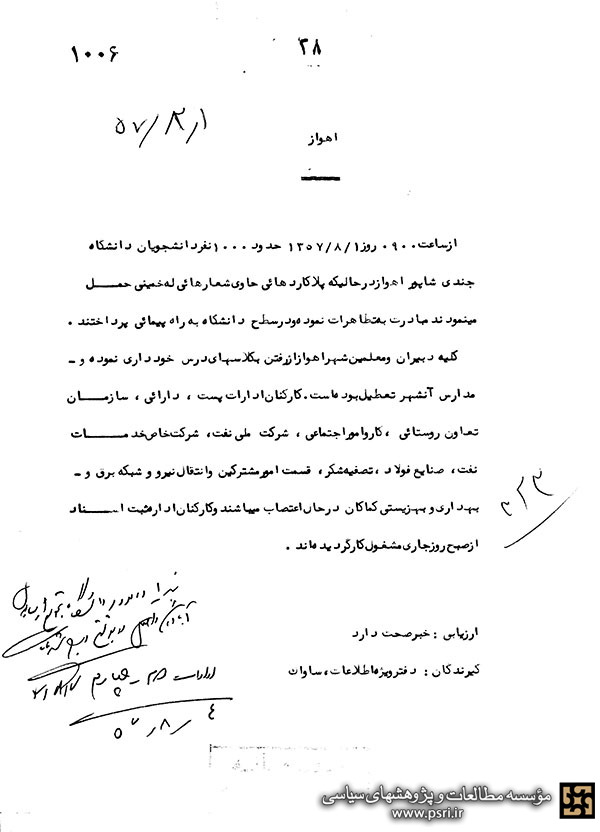 ۱۰۰۶
۳۸
۵۷/۸/۱
اهواز
ازساعت ۰۹۰۰ روز ۱۳۵۷/۸/۱ حدود ۱۰۰۰ نفردانشجویان دانشگاه
جندی شاپور اهوازدرحالیکه پلاکاردهائی حاوی شعارهائی له خمینی حمل
مینمودند مبادرت به تظاهرات نموده ودرسطح دانشگاه به راه پیمائی پرداختند .
کلیه دبیران ومعلمین شهراهوازازرفتن بکلاسهای درس خودداری نموده و -
مدارس آنشهر تعطیل بوده است . کارکنان ادارات پست ، دارائی ، سازمان
تعاون روستائی ، کاروامور اجتماعی ، شرکت ملی نفت ، شرکت خاص خدمات
نفت ، صنایع فولاد ، تصفیه شکر ، قسمت امورمشترکین وانتقال نیرو و شبکه برق و -
بهداری و بهزیستی کماکان درحال اعتصاب میباشند وکارکنان اداره ثبت اسناد
ازصبح روزجاری مشغول کارگردیده اند .
ارزیابی : خبرصحت دارد
گیرندگان : دفترویژه اطلاعات ، ساواك
۵۷/۸/۴
مؤسسه مطالعات و پژوهشهای سیاسی
www.psri.ir